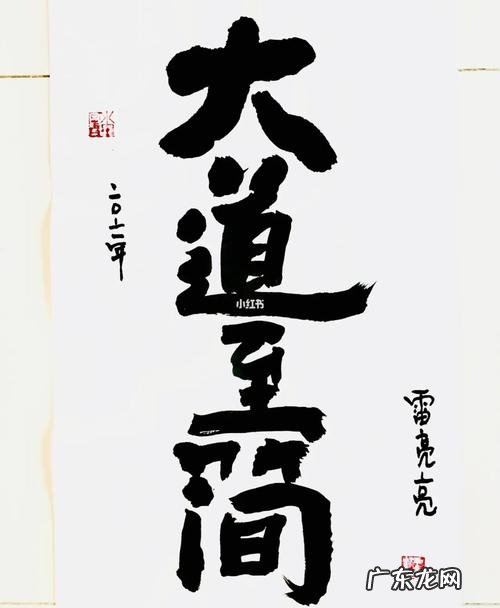 大道至简
二〇二一年
雷亮亮
小红书
广东龙网